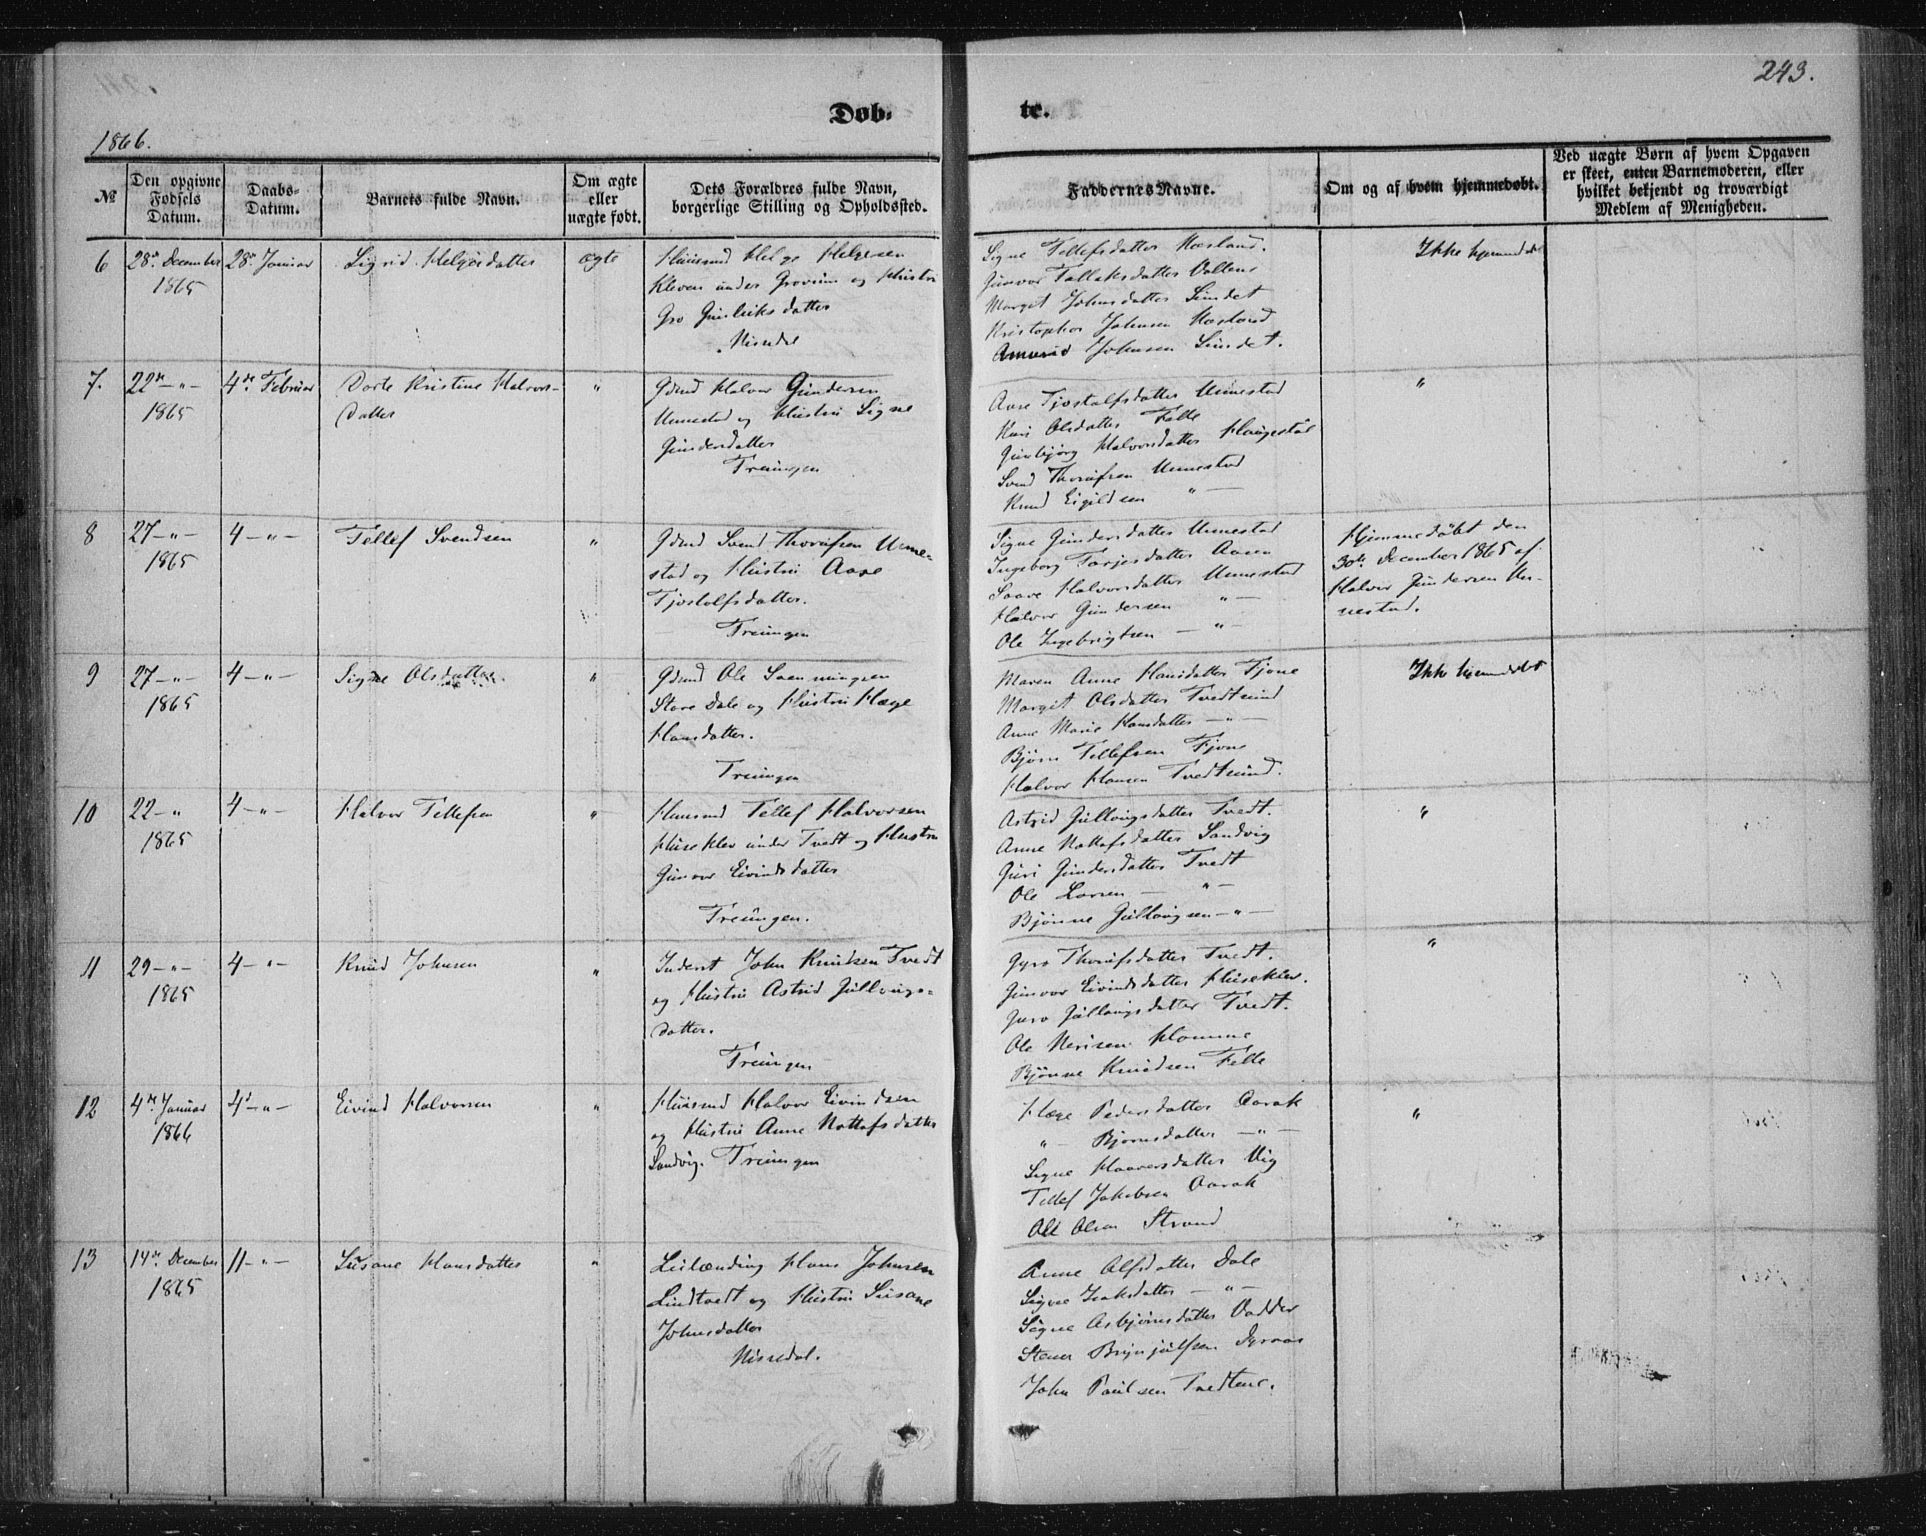 243.
Døb-
te.
1866.
№
Den opgivne Fødsels Datum.
Daabs-Datum.
Barnets fulde Navn.
Om ægte eller uægte født.
Dets Forældres fulde Navn, borgerlige Stilling og Opholdssted.
Faddernes Navne.
Om og af hvem hjemmedøbt.
Ved uægte Børn af hvem Opgaven er skeet, enten Barnemoderen, eller hvilket bekjendt og troværdigt Medlem af Menigheden.
6
28de December
1865
28de Januar
Sigrid Helgesdatter
ægte
Huusmd Helge Helgesen
Kleven under Grovum og Hustru
Gro Gunleiksdatter
Nisedal
Signe Tellefsdatter Næsland.
Gunvor Tallaksdatter Vallene
Margit Johnsdatter Sundet
Kristopher Johnsen Næsland
Amund Johnsen Sundet.
Ikke hjemmedøbt
7.
22de — " —
1865
4de Februar
Dorte Kristine Halvors-
datter
"
Gdmd Halvor Gundersen
Unnestad og Hustru Signe
Gundersdatter
Treungen
Aase Tjostolfsdatter Unnestad
Kari Olsdatter Felle
Gunbjørg Halvorsdatter Haugestøl
Svend Thorufsen Unnestad
Knud Eigildsen " —
"
8
27 — " —
1865
4 — " —
Tellef Svendsen
"
Gdmd Svend Thorufsen Unne-
stad og Hustru Aase
Tjostolfsdatter.
Treungen
Signe Gundersdatter Unnestad
Ingeborg Tarjesdatter Aasen
Saave Halvorsdatter Unnestad
Halvor Gundersen " —
Ole Ingebrigtsen — " —
Hjemmedøbt den
30te December 1865 af
Halvor Gundersen Un-
nestad.
9
27 — " —
1865
4 — " —
Signe Olsdatter.
"
Gdmd Ole Svenningsen
Store Dale og Hustru Hæge
Hansdatter.
Treungen
Maren Anne Hansdatter Fjone
Margit Olsdatter Tvedtsund
Anne Marie Hansdatter — " —
Bjørn Tellefsen Fjone
Halvor Hansen Tvedtsund.
Ikke hjemmedøbt
10
22 — "
1865
4 — " —
Halvor Tellefsen
"
Huusmd Tellef Halvorsen
Huseklev under Tvedt og Hustru
Gunvor Eivindsdatter
Treungen.
Astrid Gullougsdatter Tvedt.
Anne Nottofsdatter Sandvig
Guri Gundersdatter Tvedt
Ole Larsen — " —
Bjønne Gullougsen — " —
"
11
29 — " —
1865
4 — " —
Knud Johnsen
"
Inderst John Knudsen Tvedt
og Hustru Astrid Gullougs-
datter.
Treungen
Gyro Thorufsdatter Tvedt.
Gunvor Eivindsdatter Huseklev.
Guro Gullougsdatter Tvedt.
Ole Nerisen Homme
Bjønne Knudsen Felle
"
12
4de Januar
1866
4d — " —
Eivind Halvorsen
"
Huusmd Halvor Eivindsen
og Hustru Anne Nottofsdatter
Sandvig. Treungen
Hæge Pedersdatter Aarak
" — Bjørnsdatter — " —
Signe Haaversdatter Vig
Tellef Jakobsen Aarak
Ole Olsen Strand
"
13
14de December
1865
11 — " —
Susane Hansdatter
"
Leilænding Hans Johnsen
Lindtvedt og Hustru Susane
Johnsdatter
Nissedal.
Anne Alfsdatter Dale
Signe Isaksdatter — " —
Signe Asbjørnsdatter Vadder
Stener Brynjulfsen Dyraas
John Paulsen Tvedtene.